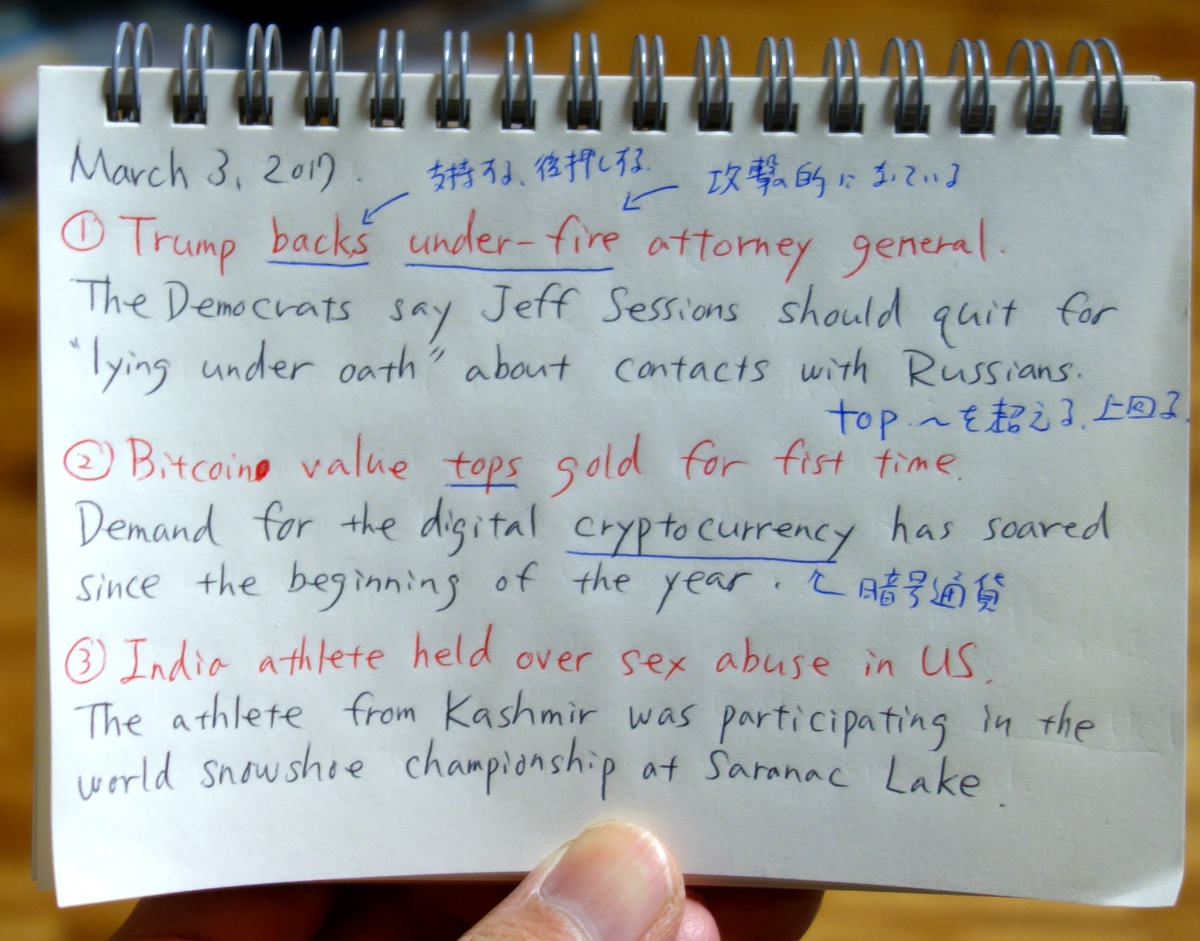 March 3, 2017.
支持する、後押しする.
攻撃的になっている
① Trump backs under-fire attorney general.
The Democrats say Jeff Sessions should quit for
"lying under oath" about contacts with Russians.
top ~を超える、上回る
② Bitcoin value tops gold for fist time.
Demand for the digital cryptocurrency has soared
since the beginning of the year. 暗号通貨
③ India athlete held over sex abuse in US.
The athlete from Kashmir was participating in the
world snowshoe championship at Saranac Lake.